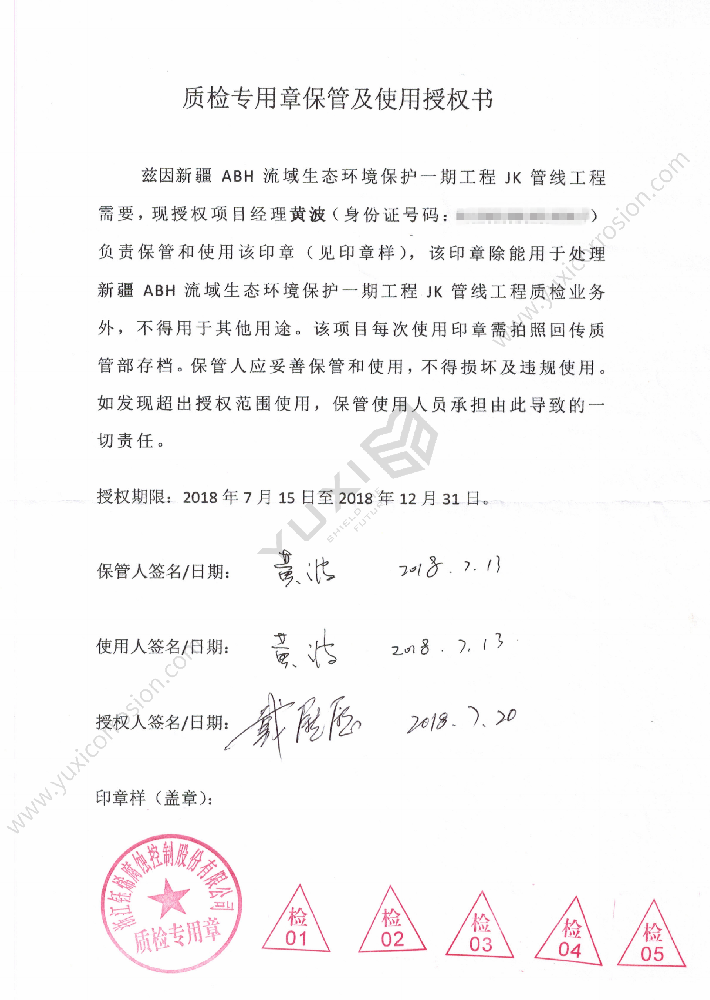 质检专用章保管及使用授权书
兹因新疆 ABH 流域生态环境保护一期工程 JK 管线工程
需要，现授权项目经理黄波（身份证号码：
）
负责保管和使用该印章（见印章样），该印章除能用于处理
新疆 ABH 流域生态环境保护一期工程 JK 管线工程质检业务
外，不得用于其他用途。该项目每次使用印章需拍照回传质
管部存档。保管人应妥善保管和使用，不得损坏及违规使用。
如发现超出授权范围使用，保管使用人员承担由此导致的一
切责任。
YUXI
SHIELD THE FUTURE
授权期限：2018 年 7 月 15 日至 2018 年 12 月 31 日。
保管人签名/日期： 黄波 2018.7.13
使用人签名/日期： 黄波 2018.7.13
授权人签名/日期： 2018.7.20
印章样（盖章）：
浙江钰烯腐蚀控制股份有限公司
质检专用章
检 01
检 02
检 03
检 04
检 05
www.yuxicorrosion.com
www.yuxicorrosion.com